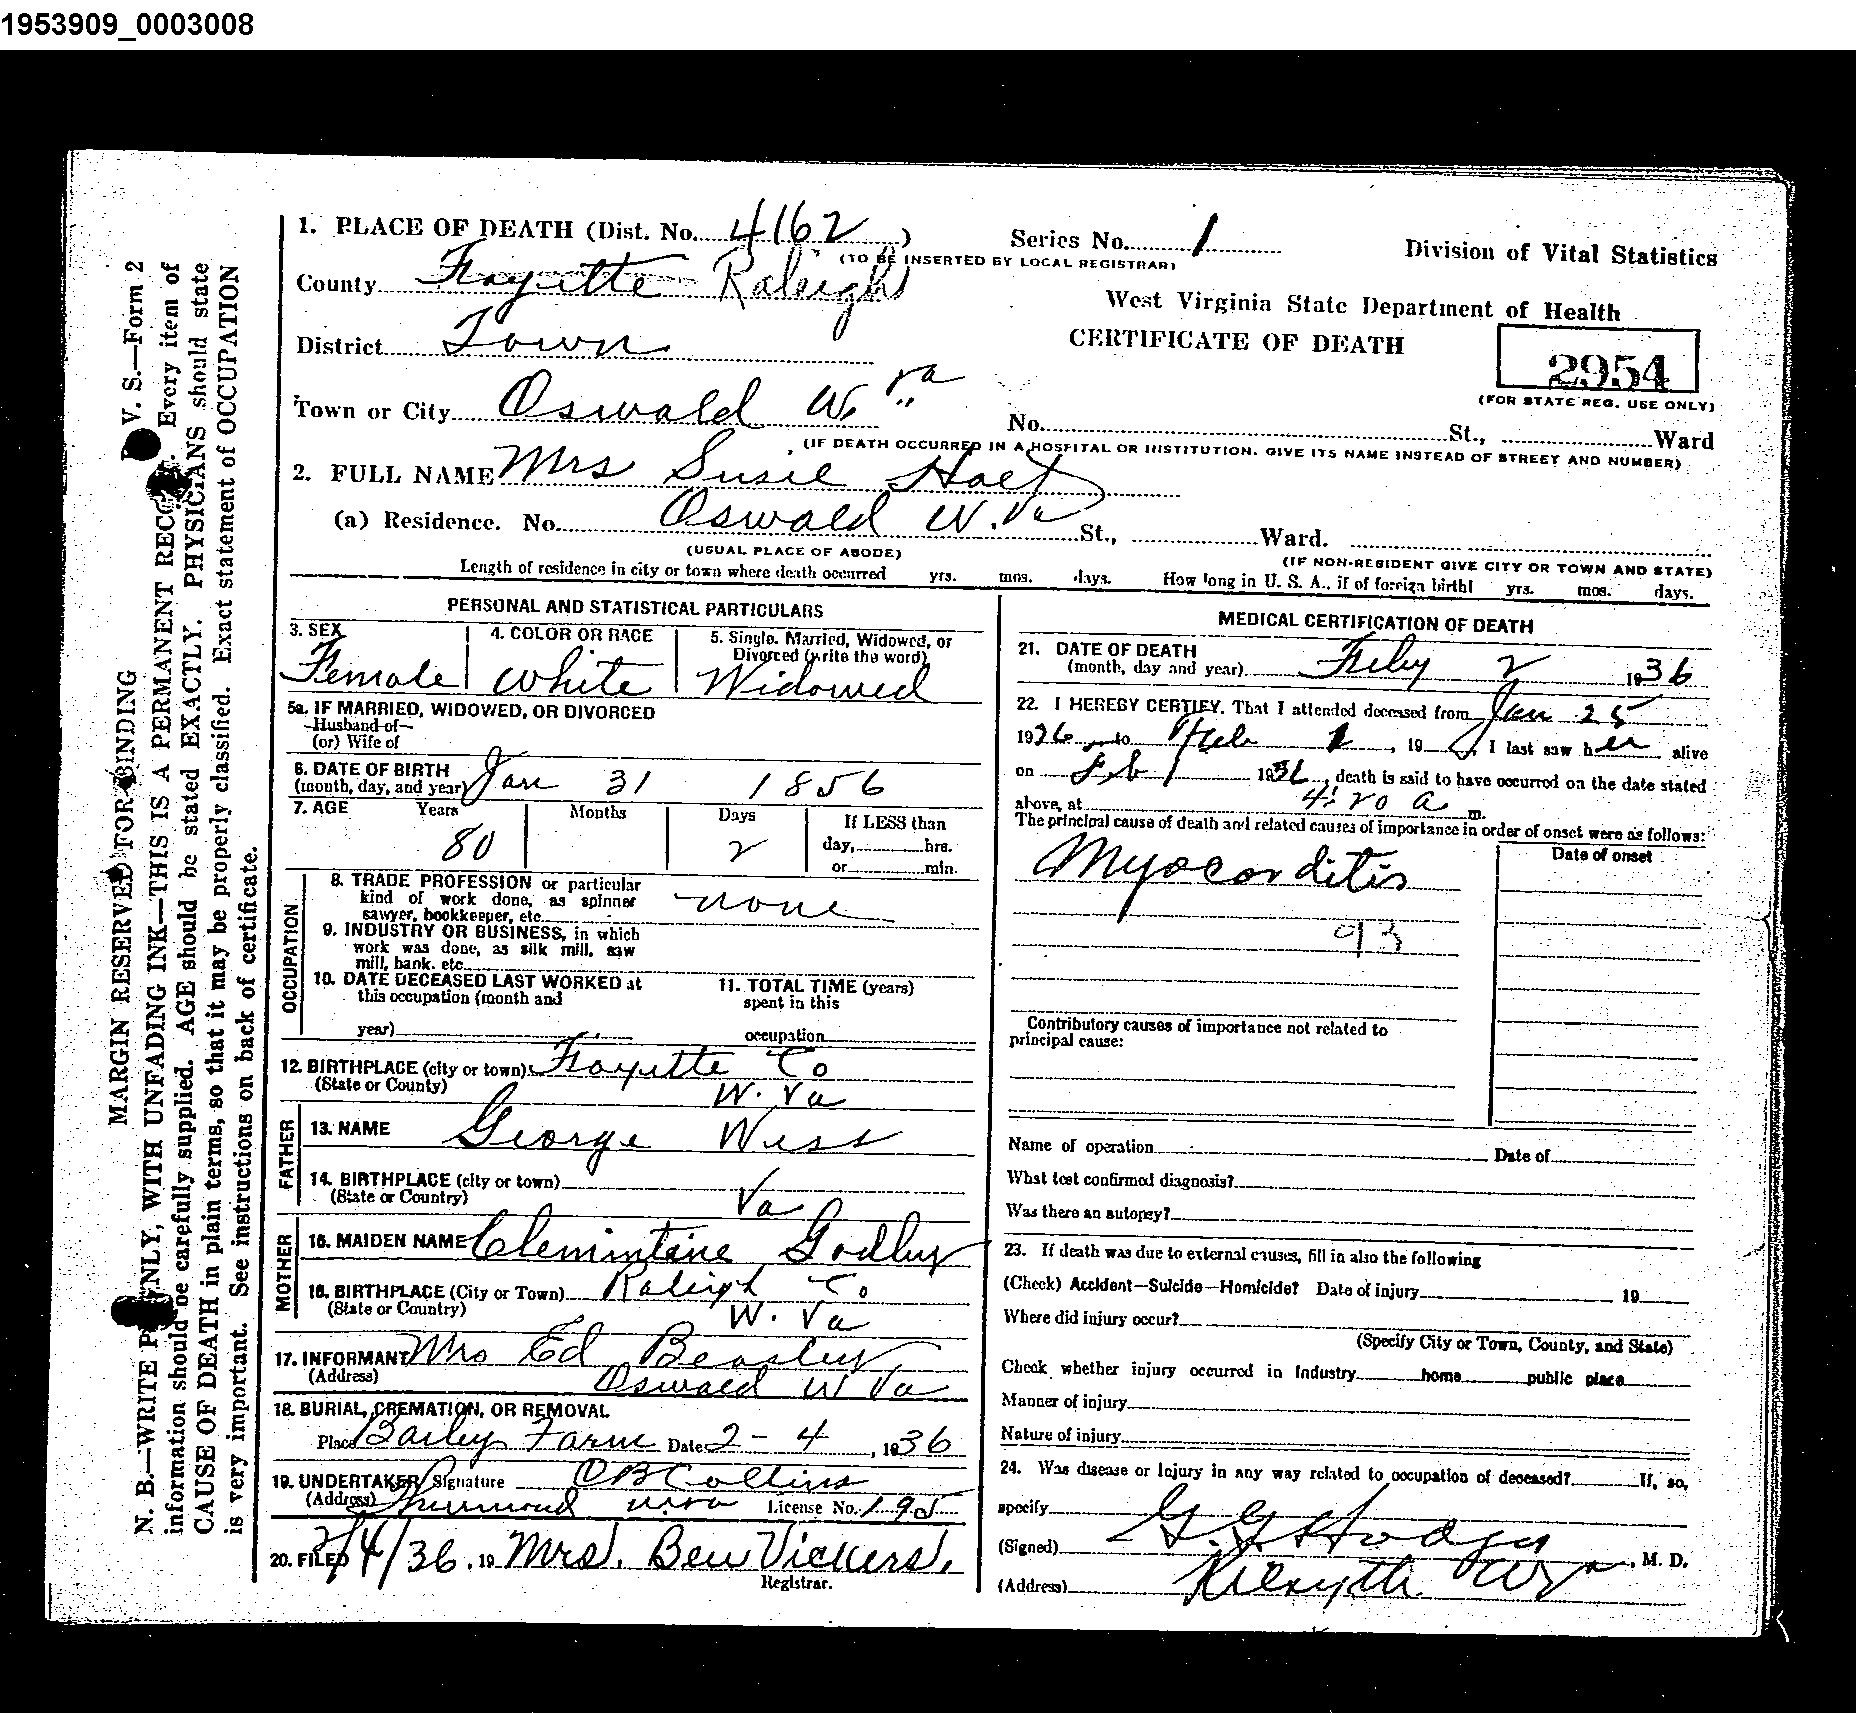 1953909_0003008
1. PLACE OF DEATH (Dist. No. 4162 )
Series No. 1
(TO BE INSERTED BY LOCAL REGISTRAR)
Division of Vital Statistics
County Fayette Raleigh
West Virginia State Department of Health
CERTIFICATE OF DEATH
District Town
2954
(FOR STATE REG. USE ONLY)
Town or City Oswald W. Va
No. St., Ward
(IF DEATH OCCURRED IN A HOSPITAL OR INSTITUTION, GIVE ITS NAME INSTEAD OF STREET AND NUMBER)
2. FULL NAME Mrs Susie Holt
(a) Residence. No. Oswald W. Va St., Ward.
(USUAL PLACE OF ABODE)
(IF NON-RESIDENT GIVE CITY OR TOWN AND STATE)
Length of residence in city or town where death occurred yrs. mos. days. How long in U. S. A., if of foreign birth? yrs. mos. days.
PERSONAL AND STATISTICAL PARTICULARS
3. SEX
4. COLOR OR RACE
5. Single, Married, Widowed, or
Divorced (write the word)
Female White Widowed
5a. IF MARRIED, WIDOWED, OR DIVORCED
Husband of
(or) Wife of
6. DATE OF BIRTH
(month, day, and year) Jan 31 1856
7. AGE Years Months Days If LESS than
80 2 day, hrs.
or min.
OCCUPATION
8. TRADE PROFESSION or particular
kind of work done, as spinner
sawyer, bookkeeper, etc. none
9. INDUSTRY OR BUSINESS, in which
work was done, as silk mill, saw
mill, bank, etc.
10. DATE DECEASED LAST WORKED at
this occupation (month and
year)
11. TOTAL TIME (years)
spent in this
occupation
12. BIRTHPLACE (city or town) Fayette Co
(State or County) W. Va
FATHER
13. NAME George Wess
14. BIRTHPLACE (city or town)
(State or Country) Va
MOTHER
15. MAIDEN NAME Clemintine Godley
16. BIRTHPLACE (City or Town) Raleigh Co
(State or Country) W. Va
17. INFORMANT Mrs Ed Beasley
(Address) Oswald W Va
18. BURIAL, CREMATION, OR REMOVAL
Place Bailey Farm Date 2-4, 1936
19. UNDERTAKER Signature O B Collins
(Address) Thurmond W Va License No. 195
20. FILED 2/4/36, 19 Mrs. Ben Vickers.
Registrar.
MEDICAL CERTIFICATION OF DEATH
21. DATE OF DEATH
(month, day and year) Feby 2 1936
22. I HEREBY CERTIFY, That I attended deceased from Jan 25
1936, to Feb 1, 19 , I last saw her alive
on Feb 1 1936, death is said to have occurred on the date stated
above, at 4:20 a m.
The principal cause of death and related causes of importance in order of onset were as follows:
Date of onset
Myocarditis
93
Contributory causes of importance not related to
principal cause:
Name of operation Date of
What test confirmed diagnosis?
Was there an autopsy?
23. If death was due to external causes, fill in also the following
(Check) Accident—Suicide—Homicide? Date of injury 19
Where did injury occur?
(Specify City or Town, County, and State)
Check whether injury occurred in Industry home public place
Manner of injury
Nature of injury
24. Was disease or Injury in any way related to occupation of deceased? If, so,
specify
(Signed) G. G. Hodges, M. D.
(Address) Kilsyth W Va
V. S.—Form 2
MARGIN RESERVED FOR BINDING
N. B.—WRITE PLAINLY, WITH UNFADING INK—THIS IS A PERMANENT RECORD. Every item of
information should be carefully supplied. AGE should be stated EXACTLY. PHYSICIANS should state
CAUSE OF DEATH in plain terms, so that it may be properly classified. Exact statement of OCCUPATION
is very important. See instructions on back of certificate.